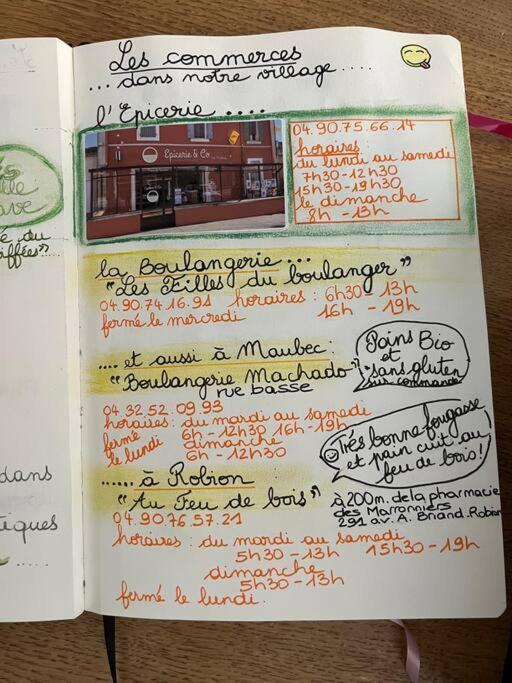 Les commerces
... dans notre village ....
l'Epicerie ....
Epicerie & Co
04.90.75.66.14
horaires :
du lundi au samedi
7h30-12h30
15h30-19h30
le dimanche
8h - 13h
la Boulangerie...
"Les Filles du boulanger"
04.90.74.16.91 horaires : 6h30 - 13h
fermé le mercredi 16h - 19h
.... et aussi à Maubec :
"Boulangerie Machado"
rue basse
Pains Bio
et
sans gluten
sur commande
04.32.52.09.93
horaires : du mardi au samedi
6h-12h30 16h-19h
fermé
le lundi
dimanche
6h-12h30
Très bonne fougasse
et pain cuit au
feu de bois !
...... à Robion
"Au Feu de bois"
à 200m. de la pharmacie
des Marronniers
291 av. A. Briand. Robion
04.90.76.57.21
horaires : du mardi au samedi
5h30-13h 15h30-19h
dimanche
5h30-13h
fermé le lundi.
dans
tiques